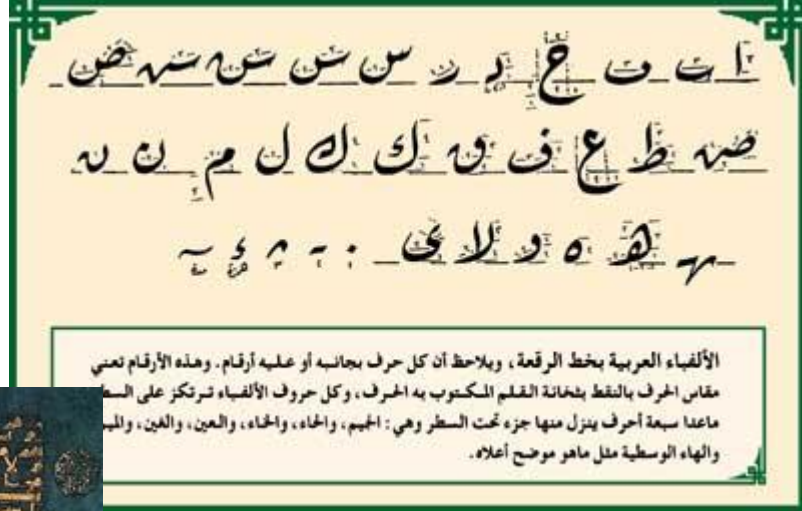 ا ت ف ح د ر س س س س ض
ض ظ ع ف ق ك ك ل م ن ن
ـهـ ه ه و لا ي
الألفباء العربية بخط الرقعة، ويلاحظ أن كل حرف بجانبه أو عليه أرقام. وهذه الأرقام تعني
مقاس الحرف بالنقط بثخانة القلم المكتوب به الحرف، وكل حروف الألفباء ترتكز على
ماعدا سبعة أحرف ينزل منها جزء تحت السطر وهي: الجيم، والحاء، والخاء، والعين، والغين،
والهاء الوسطية مثل ماهو موضح أعلاه.